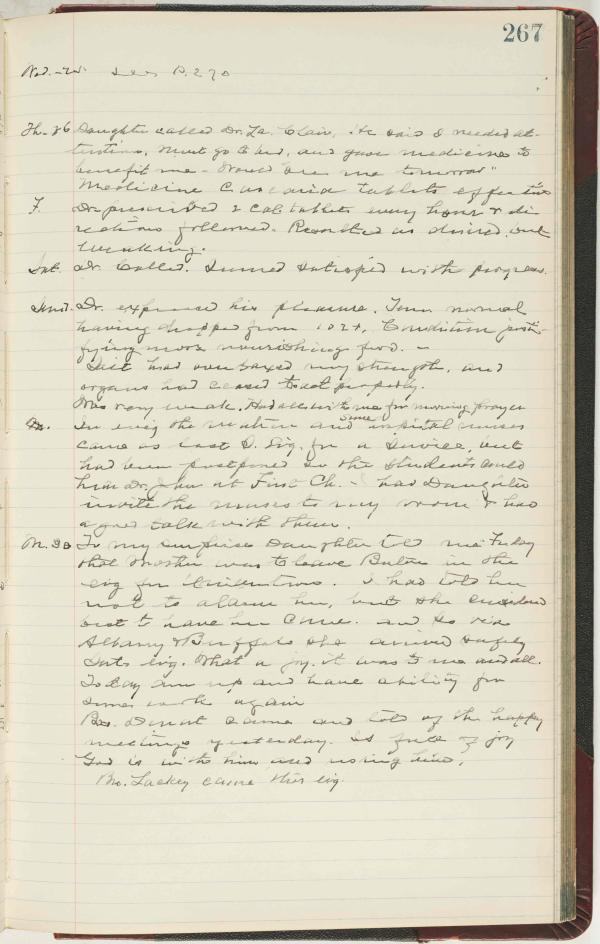 267
Wed. - 25. See P. 270
Th. 26 Daughter called Dr. La Clair, He said I needed at-
tention, must go to bed, and gave medicine to
benefit me - Would see me tomorrow"
Medicine Cascaria tablets effective
F. Dr. prescribed 2 cal. tablets every hour & di-
rections followed. Resulted as desired, but
weakening.
Sat. Dr. Called. Seemed satisfied with progress.
Sund. Dr. expressed his pleasure. Temp. normal
having dropped from 102+, Condition justi-
fying more nourishing food. -
Diet had over taxed my strength, and
organs had ceased to act properly.
Was very weak. Had all with me for morning prayer
In evig the matron and some hospital nurses
came as last S. Evig. for a Service, but
had been postponed so the students could
hear Dr. John at First Ch. - I had Daughter
invite the nurses to my room & had
a good talk with them.
M. 30 To my surprise Daughter told me Friday
that Mother was to leave in the
evig for . I had told her
not to alarm her, but she considered
best to have her come. and so via
Albany & Buffalo she arrived safely
Sat. evig. What a joy it was to me and all.
Today am up and have ability for
some work again
Bro. came and told of the happy
meetings yesterday. Is full of joy
God is with him and using him.
Bro. Lackey came this evig.